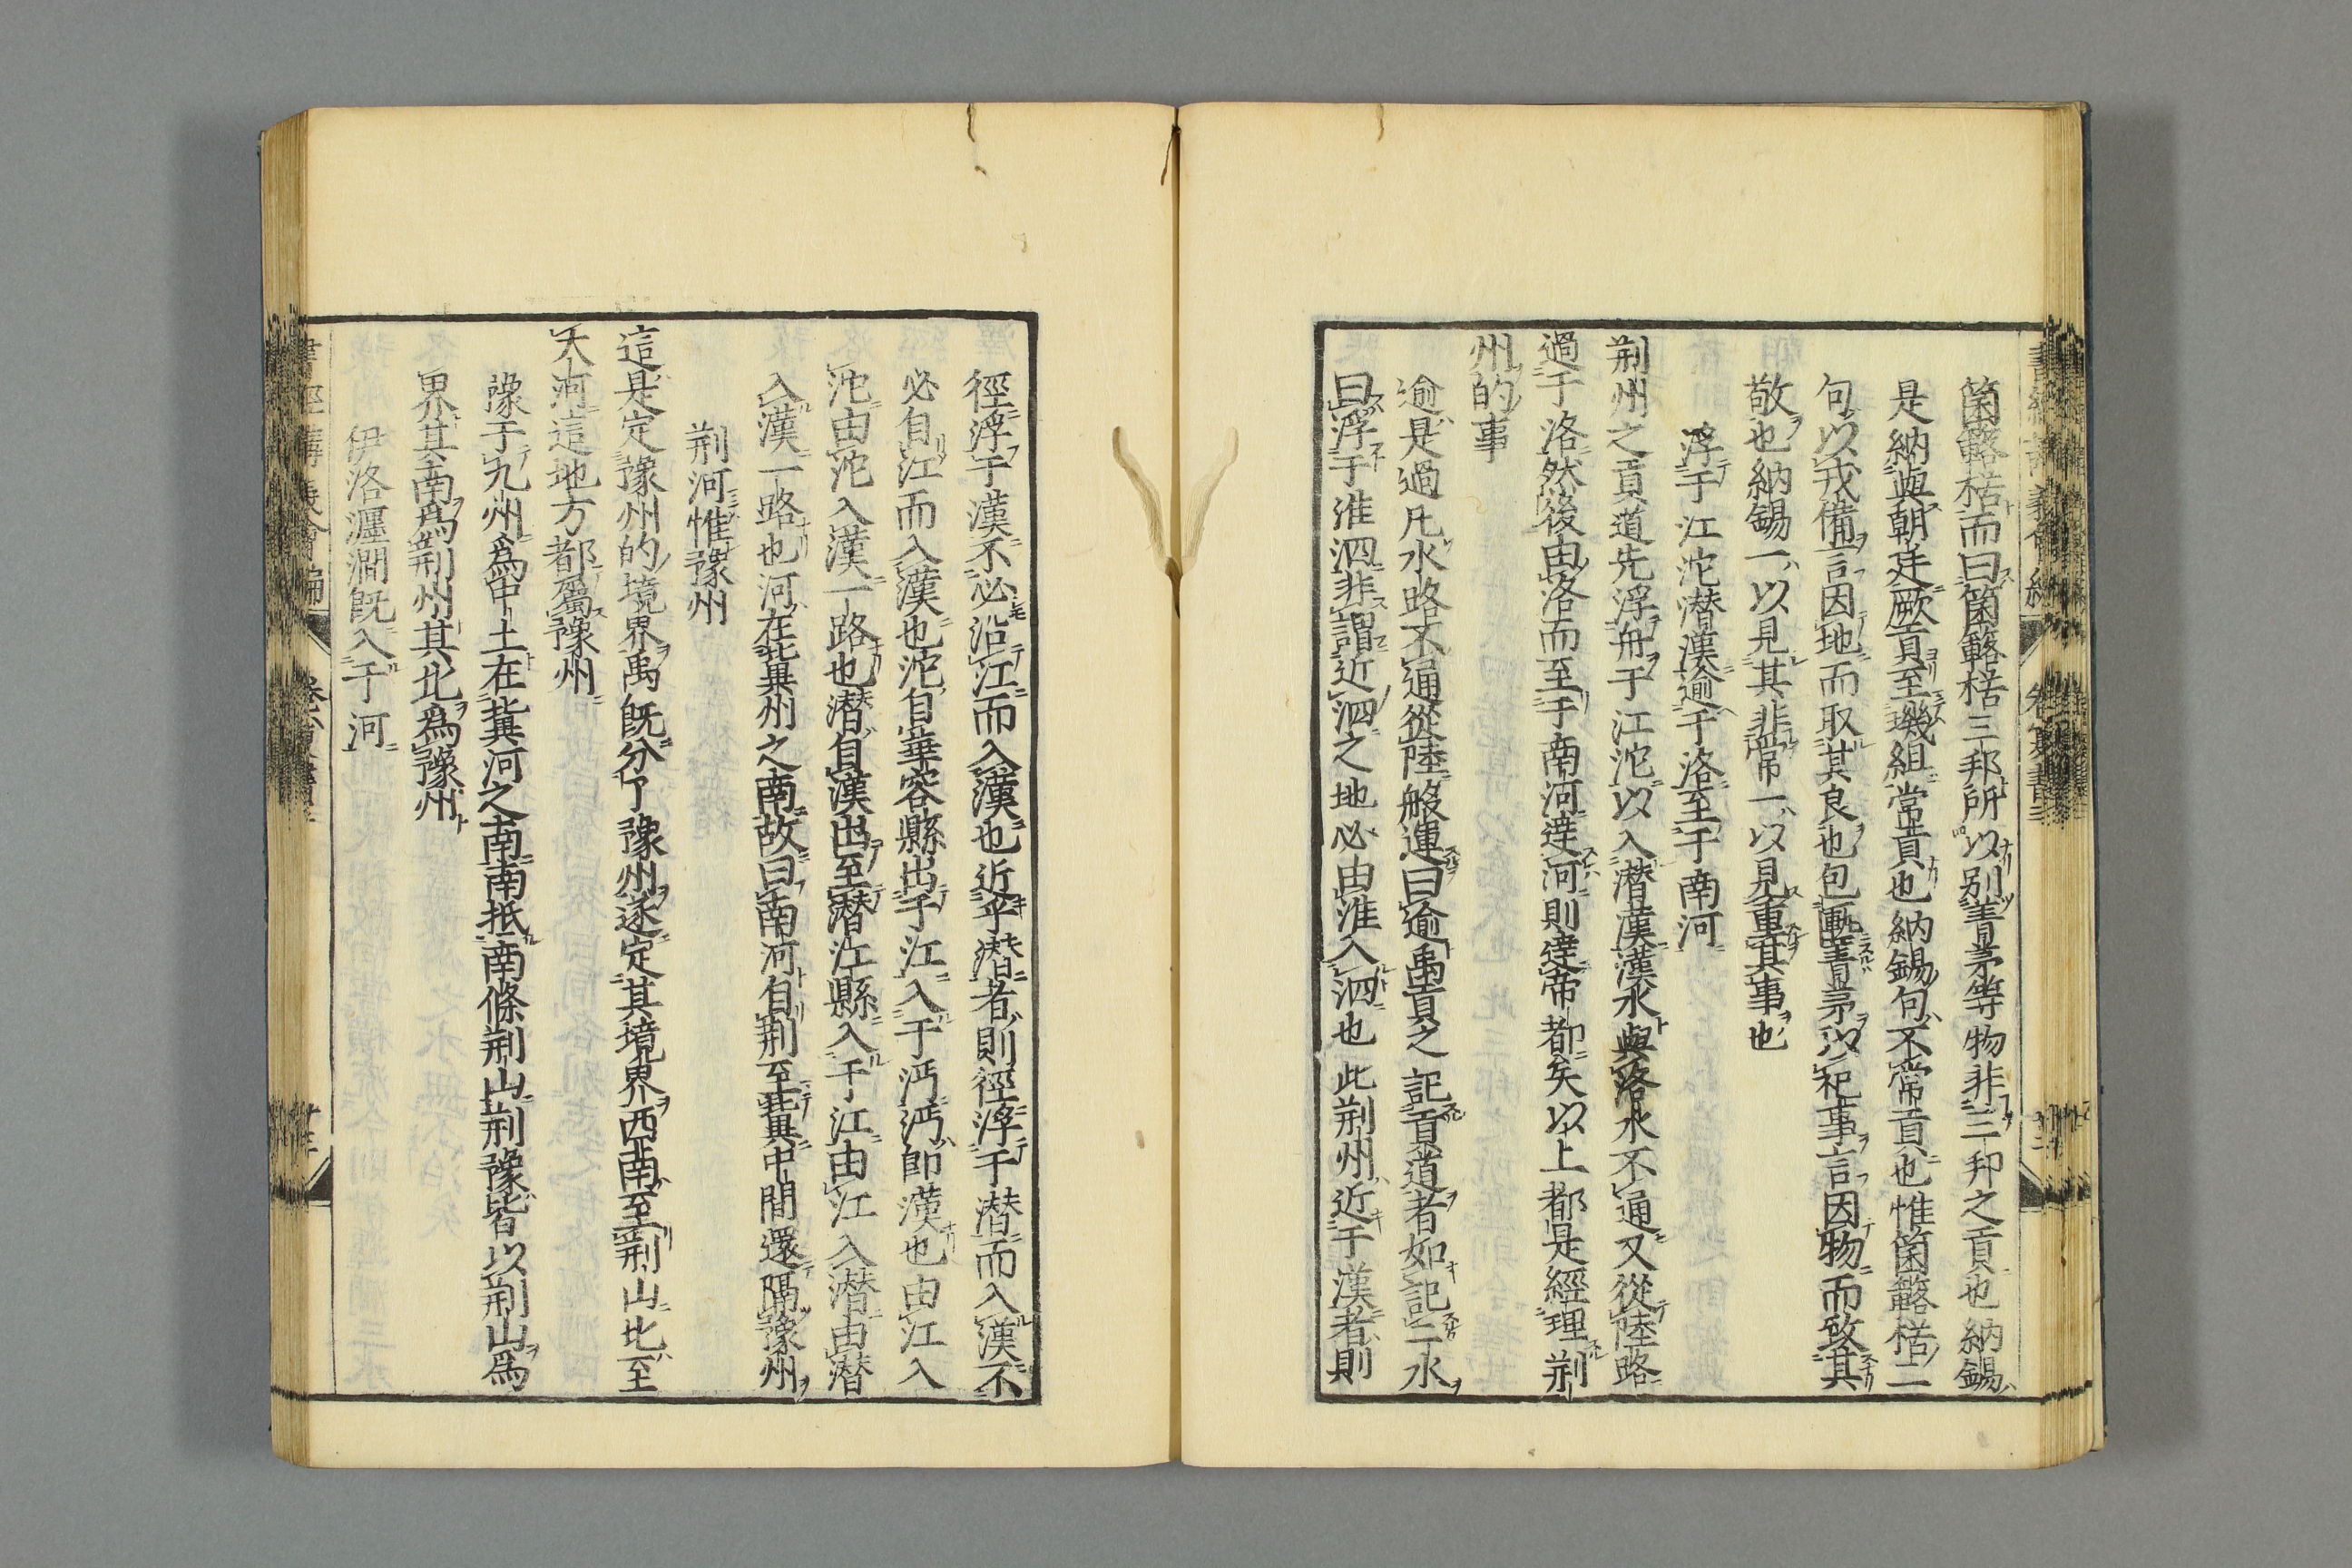 箘簵楛而曰箘簵楛三邦所以別菁茅等物非三邦之貢也納錫
是納與朝廷厥貢至璣組常貢也納錫句不常貢也惟箘簵楛二
句以戎備言因地而取其良也包匭菁茅以祀事言因物而致其
敬也納錫一以見其非常一以見重其事也
浮于江沱潜漢逾于洛至于南河
荆州之貢道先浮舟于江沱以入潜漢漢水與洛水不通又從陸路
過于洛然後由洛而至于南河達河則達帝都矣以上都是經理荆
州的事
逾是過凡水路不通從陸般運曰逾禹貢之記貢道者如記二水
曰浮于淮泗非謂近泗之地必由淮入泗也此荆州近于漢者則
徑浮于漢不必沿江而入漢也近乎潜者則徑浮于潜而入漢不
必自江而入漢也沱自華容縣出于江入于沔沔即漢也由江入
沱由沱入漢一路也潜自漢出至潜江縣入于江由江入潜由潜
入漢一路也河在冀州之南故曰南河自荆至冀中間還隔豫州
荆河惟豫州
這是定豫州的境界禹旣分了豫州遂定其境界西南至荆山北至
大河這地方都屬豫州
豫于九州為中土在冀河之南南抵南條荆山荆豫皆以荆山爲
界其南爲荆州其北爲豫州
伊洛瀍澗旣入于河